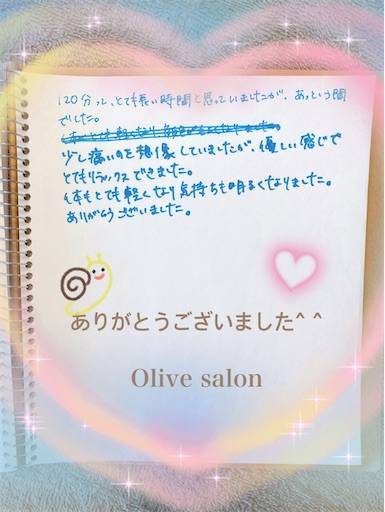 120分って、とても長い時間と思っていましたが、あっという間
でした。
少し痛いのを想像していましたが、優しい感じで
とてもリラックスできました。
体もとても軽くなり気持ちも明るくなりました。
ありがとうございました。
ありがとうございました^ ^
Olive salon